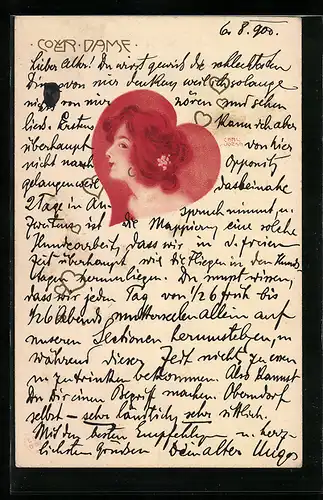 6. 8. 900.
COEUR-DAME
Lieber Alter! Du wirst gewiss die schlechtesten
Dinge von mir denken, weil ich solange
nichts von mir hören und sehen
liess. Erstens kann ich aber
überhaupt von hier
nicht nach Opponitz
gelangen weil das beinahe
2 Tage in An-spruch nimmt, u.
Zweitens ist die Mappierung eine solche
Hundearbeit, dass wir in d. freien
Zeit überhaupt wie die Fliegen in den Hunds-
tagen herumliegen. Du musst wissen,
dass wir jeden Tag von 1/2 6 früh bis
1/2 6 Abends mutterseelen allein auf
unseren Sectionen herumsteigen, u.
während dieser Zeit nichts zu essen
u. zu trinken bekommen. Also kannst
Du Dir einen Begriff machen. Oberndorf
selbst – sehr ländlich, sehr sittlich.
Mit den besten Empfehlungen u. herz-
lichsten Grüssen Dein alter Hugo